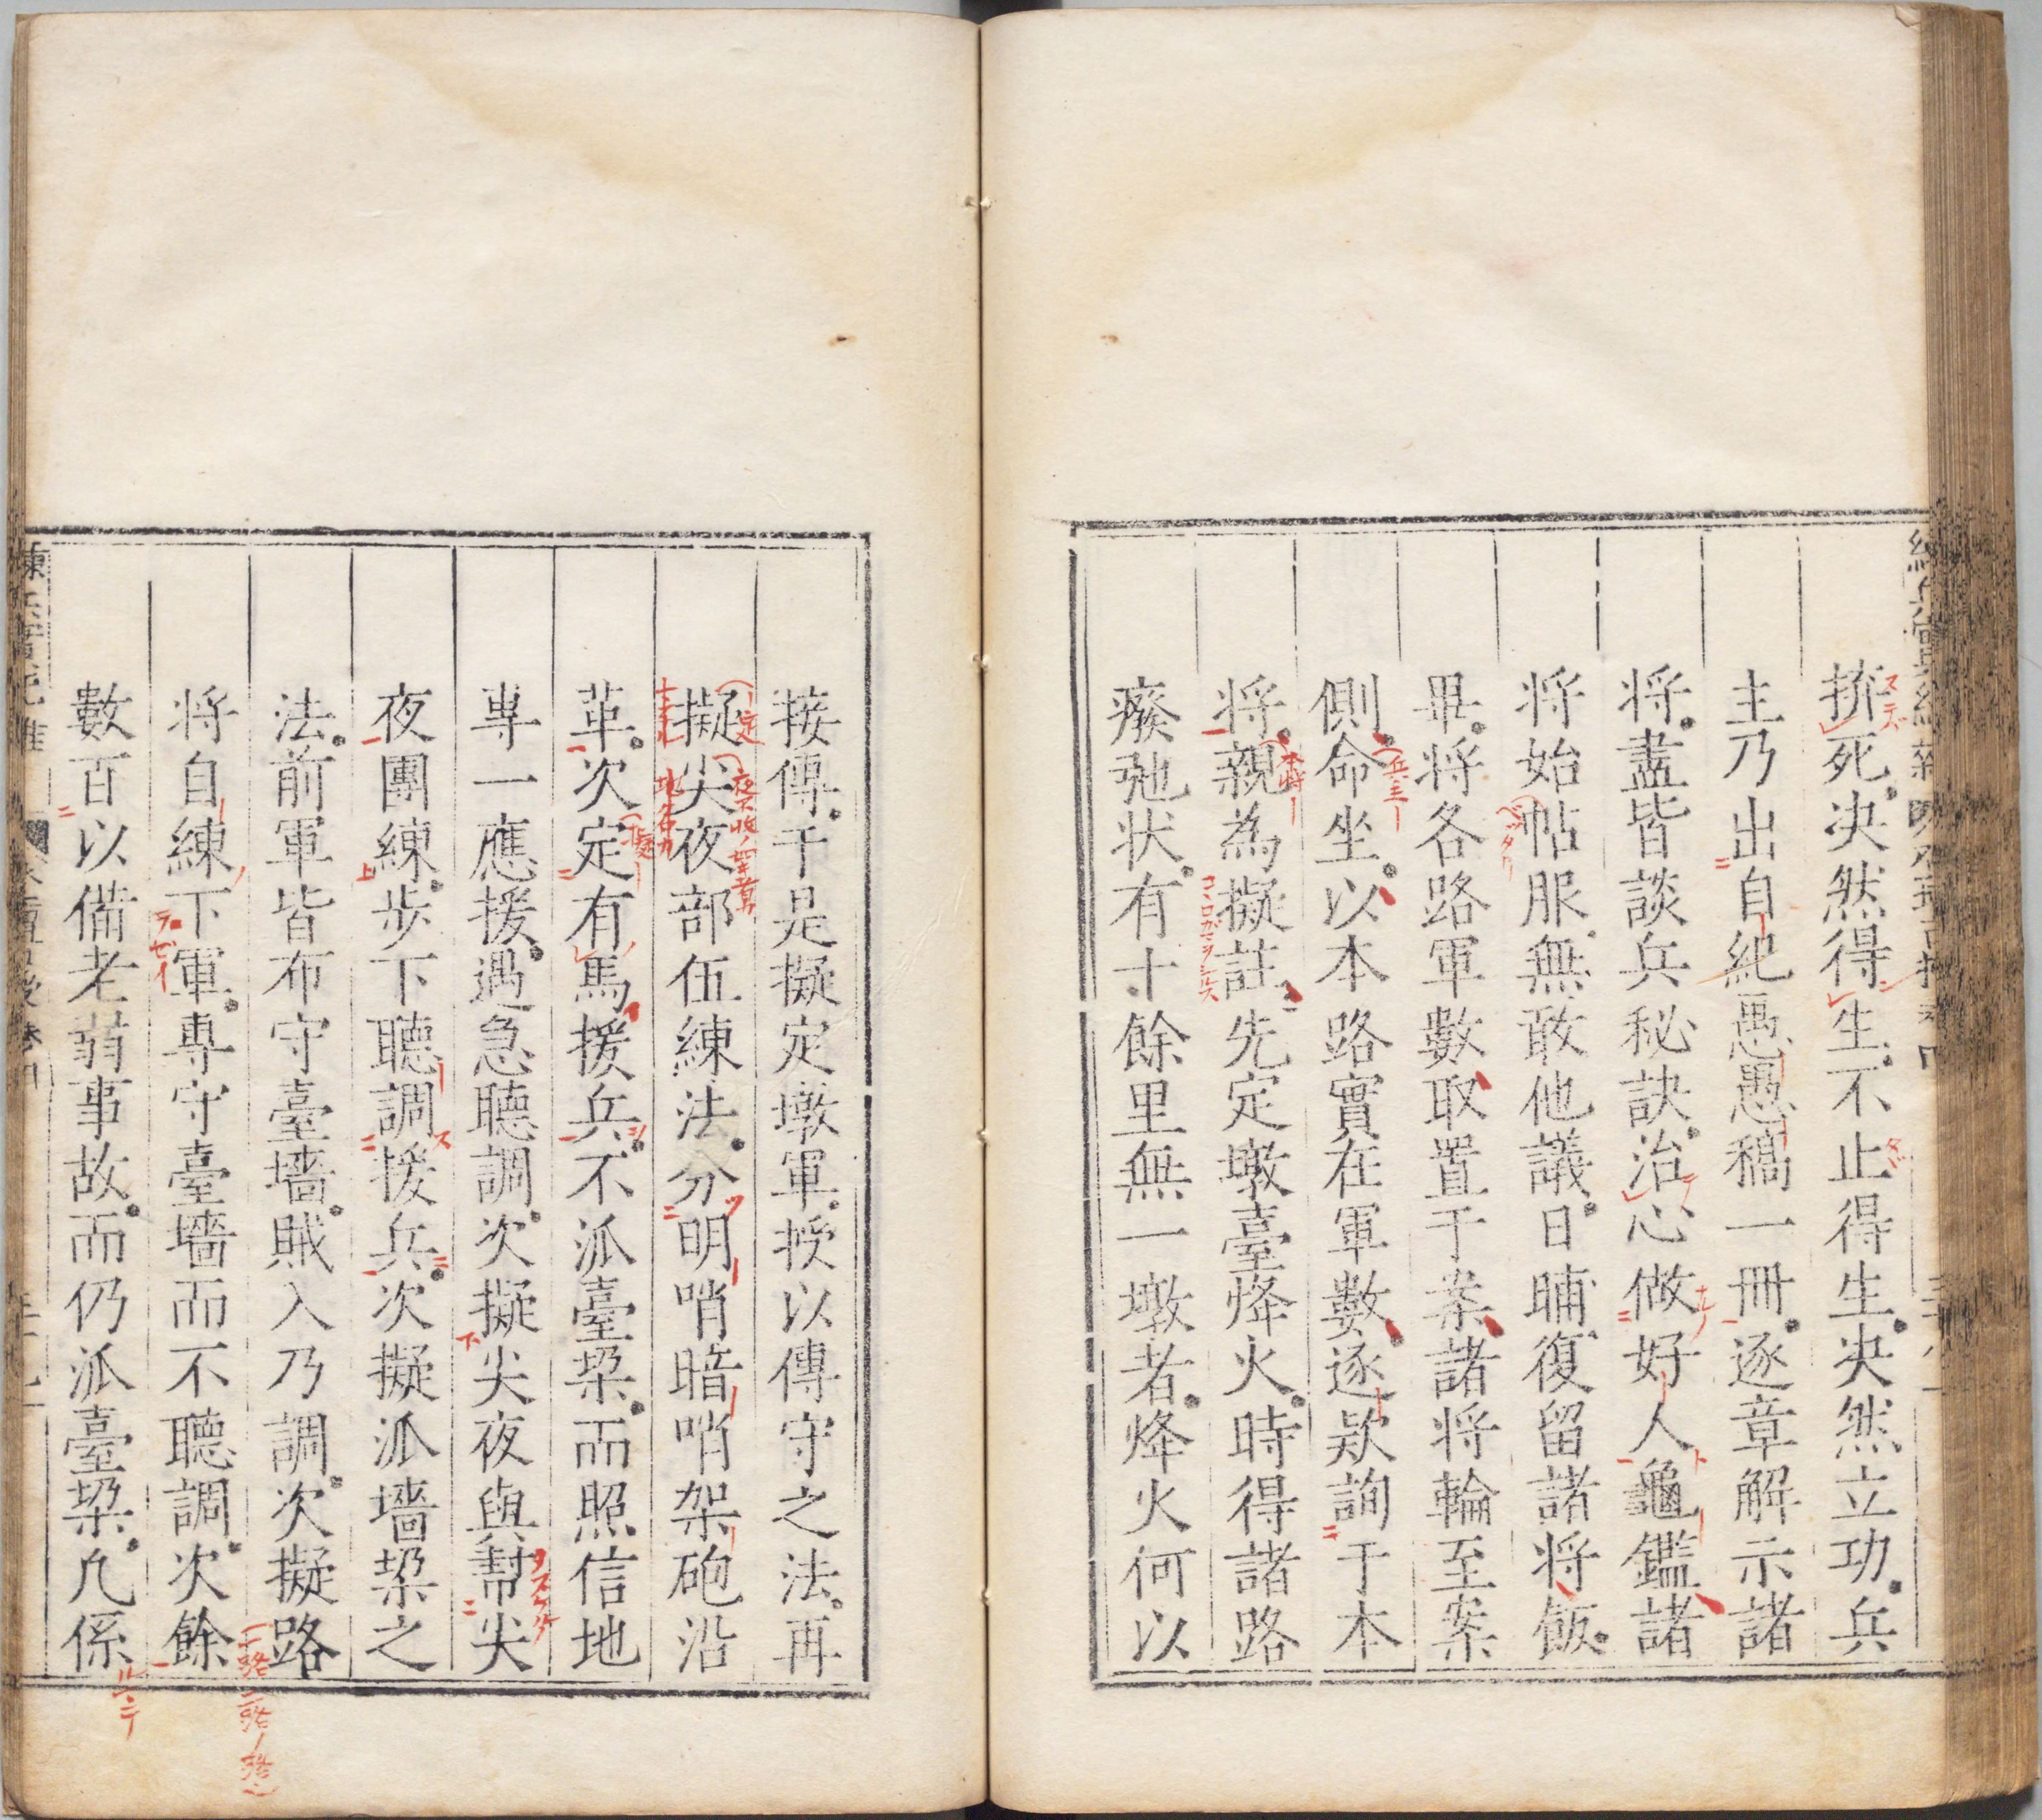 拚死决然得生不止得生决然立功兵
主乃出自紀愚愚稿一冊逐章解示諸
将盡皆談兵秘訣治心做好人龜鑑諸
将始帖服無敢他議日晡復留諸将飯
畢将各路軍數取置于案諸将輪至案
側命坐以本路實在軍數逐欵詢于本
将親為擬註先定墩臺烽火時得諸路
癈弛状有十餘里無一墩者烽火何以
接傳于是擬定墩軍授以傳守之法再
擬尖夜部伍練法分明哨暗哨架砲沿
革次定有馬援兵不派臺垜而照信地
專一應援遇急聽調次擬尖夜與幇尖
夜團練步下聽調援兵次擬派墻垜之
法前軍皆布守臺墻賊入乃調次擬路
将自練下軍專守臺墻而不聽調次餘
數百以備老弱事故而仍派臺垜凢係